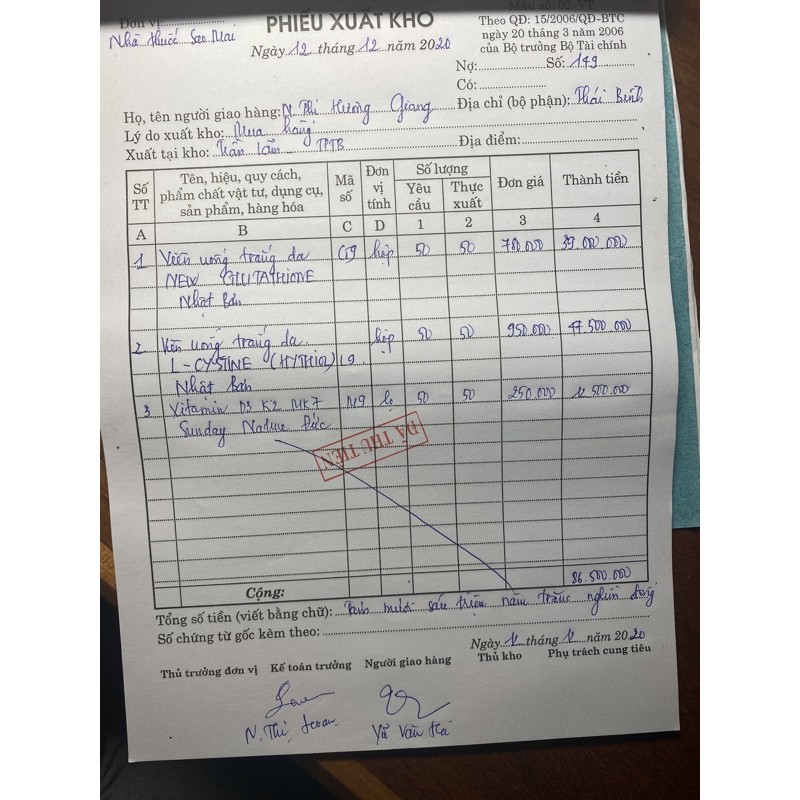 Đơn vị
PHIẾU XUẤT KHO
Mẫu số: 02-VT
Nhà thuốc Sao Mai
Theo QĐ: 15/2006/QĐ-BTC
ngày 20 tháng 3 năm 2006
của Bộ trưởng Bộ Tài chính
Ngày 12 tháng 12 năm 2020
Nợ: Số: 149
Có:
Họ, tên người giao hàng: N. Thị Hương Giang Địa chỉ (bộ phận): Thái Bình
Lý do xuất kho: Mua hàng
Xuất tại kho: Trần Lãm TPTB Địa điểm:
Số TT Tên, hiệu, quy cách, phẩm chất vật tư, dụng cụ, sản phẩm, hàng hóa Mã số Đơn vị tính Số lượng Yêu cầu Thực xuất Đơn giá Thành tiền
A B C D 1 2 3 4
1 Viên uống trắng da G9 hộp 50 50 780.000 39.000.000
NEW GLUTATHIONE
Nhật Bản
2 Viên uống trắng da hộp 50 50 950.000 47.500.000
L-CYSTINE (HYTHIOL) L9
Nhật Bản
3 Vitamin D3 K2 MK7 M9 lọ 50 50 250.000 12.500.000
Sunday Nature Đức
ĐÃ THU TIỀN
Cộng: 86.500.000
Tổng số tiền (viết bằng chữ): Tám mươi sáu triệu năm trăm nghìn đồng
Số chứng từ gốc kèm theo:
Ngày 12 tháng 12 năm 2020
Thủ trưởng đơn vị Kế toán trưởng Người giao hàng Thủ kho Phụ trách cung tiêu
N. Thị Hoan Vũ Văn Hà